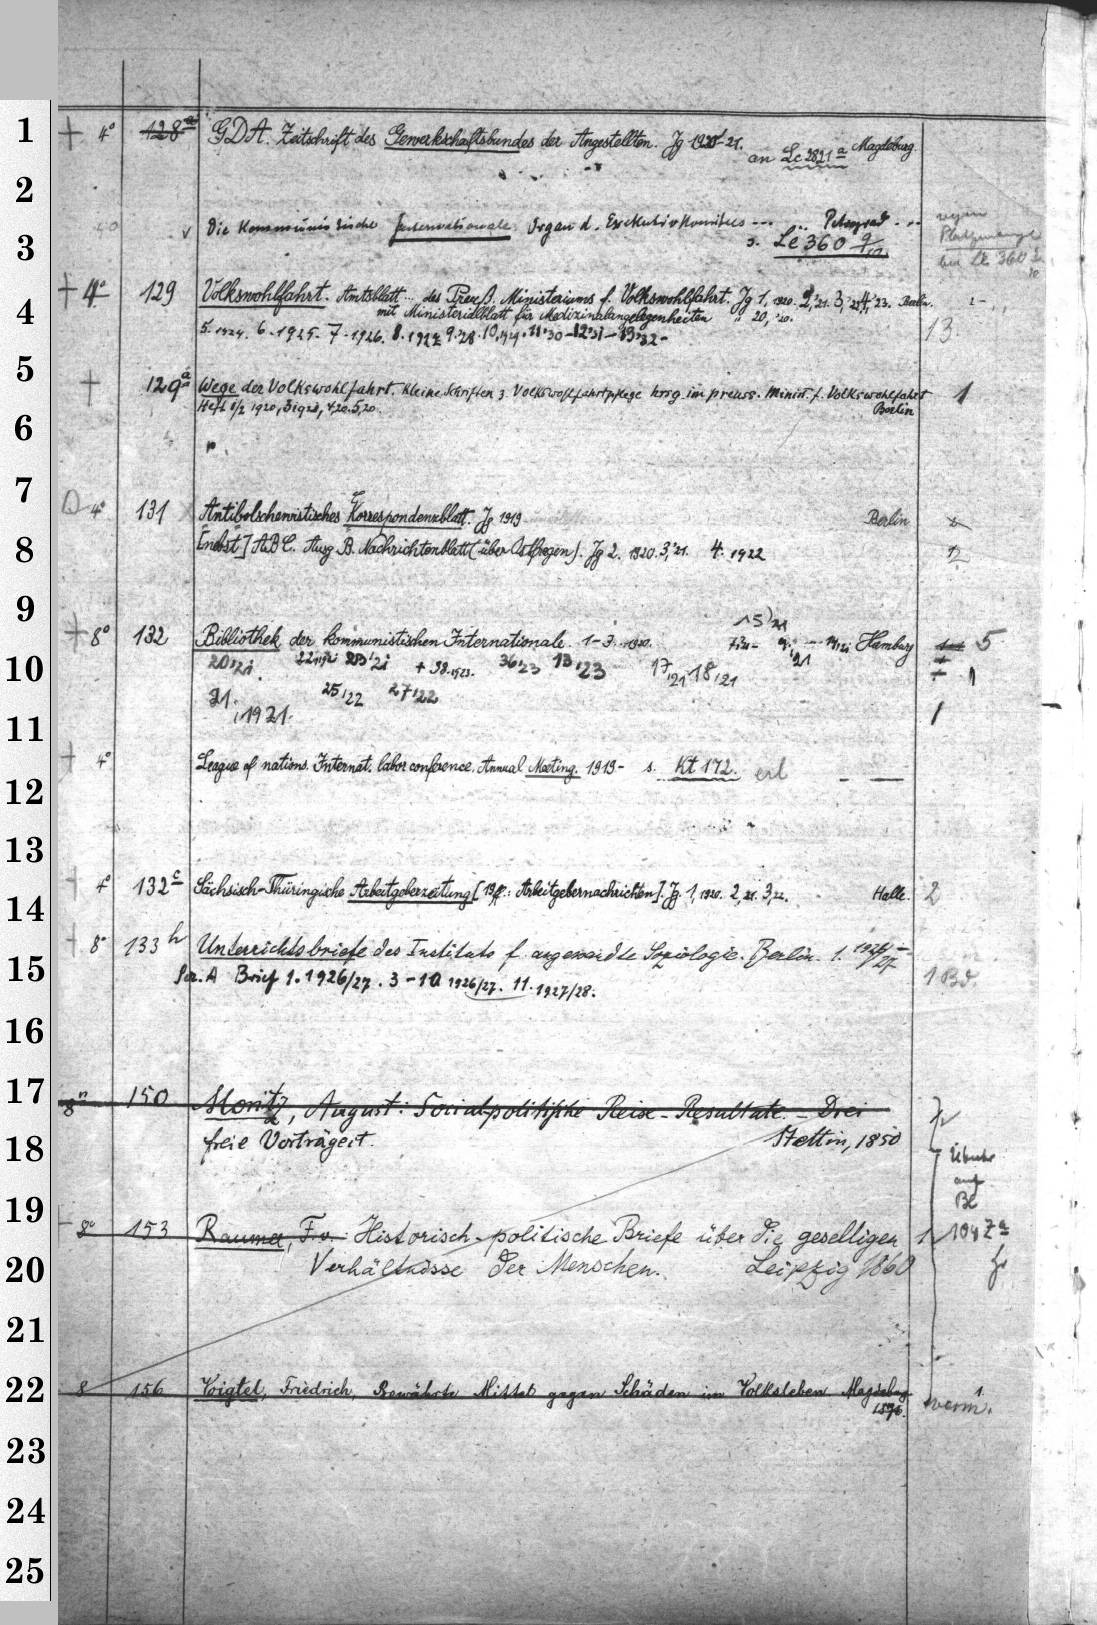 1
+ 4° 128a GDA. Zeitschrift des Gewerkschaftsbundes der Angestellten. Jg 1920-21. Magdeburg
an Le 2821 a
2
40 v Die Kommunistische Internationale. Organ d. Exekutivkomitees --- Petrograd
wegen
3
s. Le 360
Platzmangel
an Le 360
+ 4° 129 Volkswohlfahrt. Amtsblatt... des Preuß. Ministeriums f. Volkswohlfahrt. Jg 1, 1920. 2,'21. 3, 4,'23. Berlin. 2-
4
mit Ministerialblatt für Medizinalangelegenheiten " 20, '20.
5. 1924. 6. 1925. 7. 1926. 8. 1927 9.'28. 10,'29. 11.'30-12'31-13'32-
13.
5
+ 129a Wege der Volkswohlfahrt. Kleine Schriften z. Volkswohlfahrtspflege hrsg. im preuss. Minist. f. Volkswohlfahrt 1
Heft 1/2 1920, 3 1920, 4 20. 5,20 Berlin
6
7
4° 131 Antibolschewistisches Korrespondenzblatt. Jg 1919 Berlin
8
[nebst] ABC. Ausg. B. Nachrichtenblatt (über Ostfragen). Jg 2. 1920. 3,'21. 4. 1922 12
9
15)21
+ 8° 132 Bibliothek der kommunistischen Internationale. 1-3. 1920. Hamburg 5
10
20'21. 22,1921 23'21 + 32.1923. 36'23 13'23 17,21 18,21
21.,1921. 25,'22 27'22
11
1
+ 4° League of nations. Internat. labor conference. Annual Meeting. 1919- s. Kt 172. erl - —
12
13
4° 132c Sächsisch-Thüringische Arbeitgeberzeitung [19ff.: Arbeitgebernachrichten]. Jg. 1, 1920. 2, 21. 3, 22. Halle. 2
14
8° 133h Unterrichtsbriefe des Instituts f. angewandte Soziologie. Berlin. 1. 1926/27-
15
Ser. A Brief 1. 1926/27. 3-10 1926/27. 11. 1927/28. 1 Bd.
16
17
8° 150 Moritz, August: Social-politische Reise-Resultate. - Drei
18
freie Vorträge. Stettin, 1850
auf
19
8° 153 Raumer, F. v.: Historisch-politische Briefe über die geselligen 1
20
Verhältnisse der Menschen. Leipzig 1860
21
22
8 156 Voigtel, Friedrich, Bewährte Mittel gegen Schäden im Volksleben Magdeburg 1
1896. verm.
23
24
25